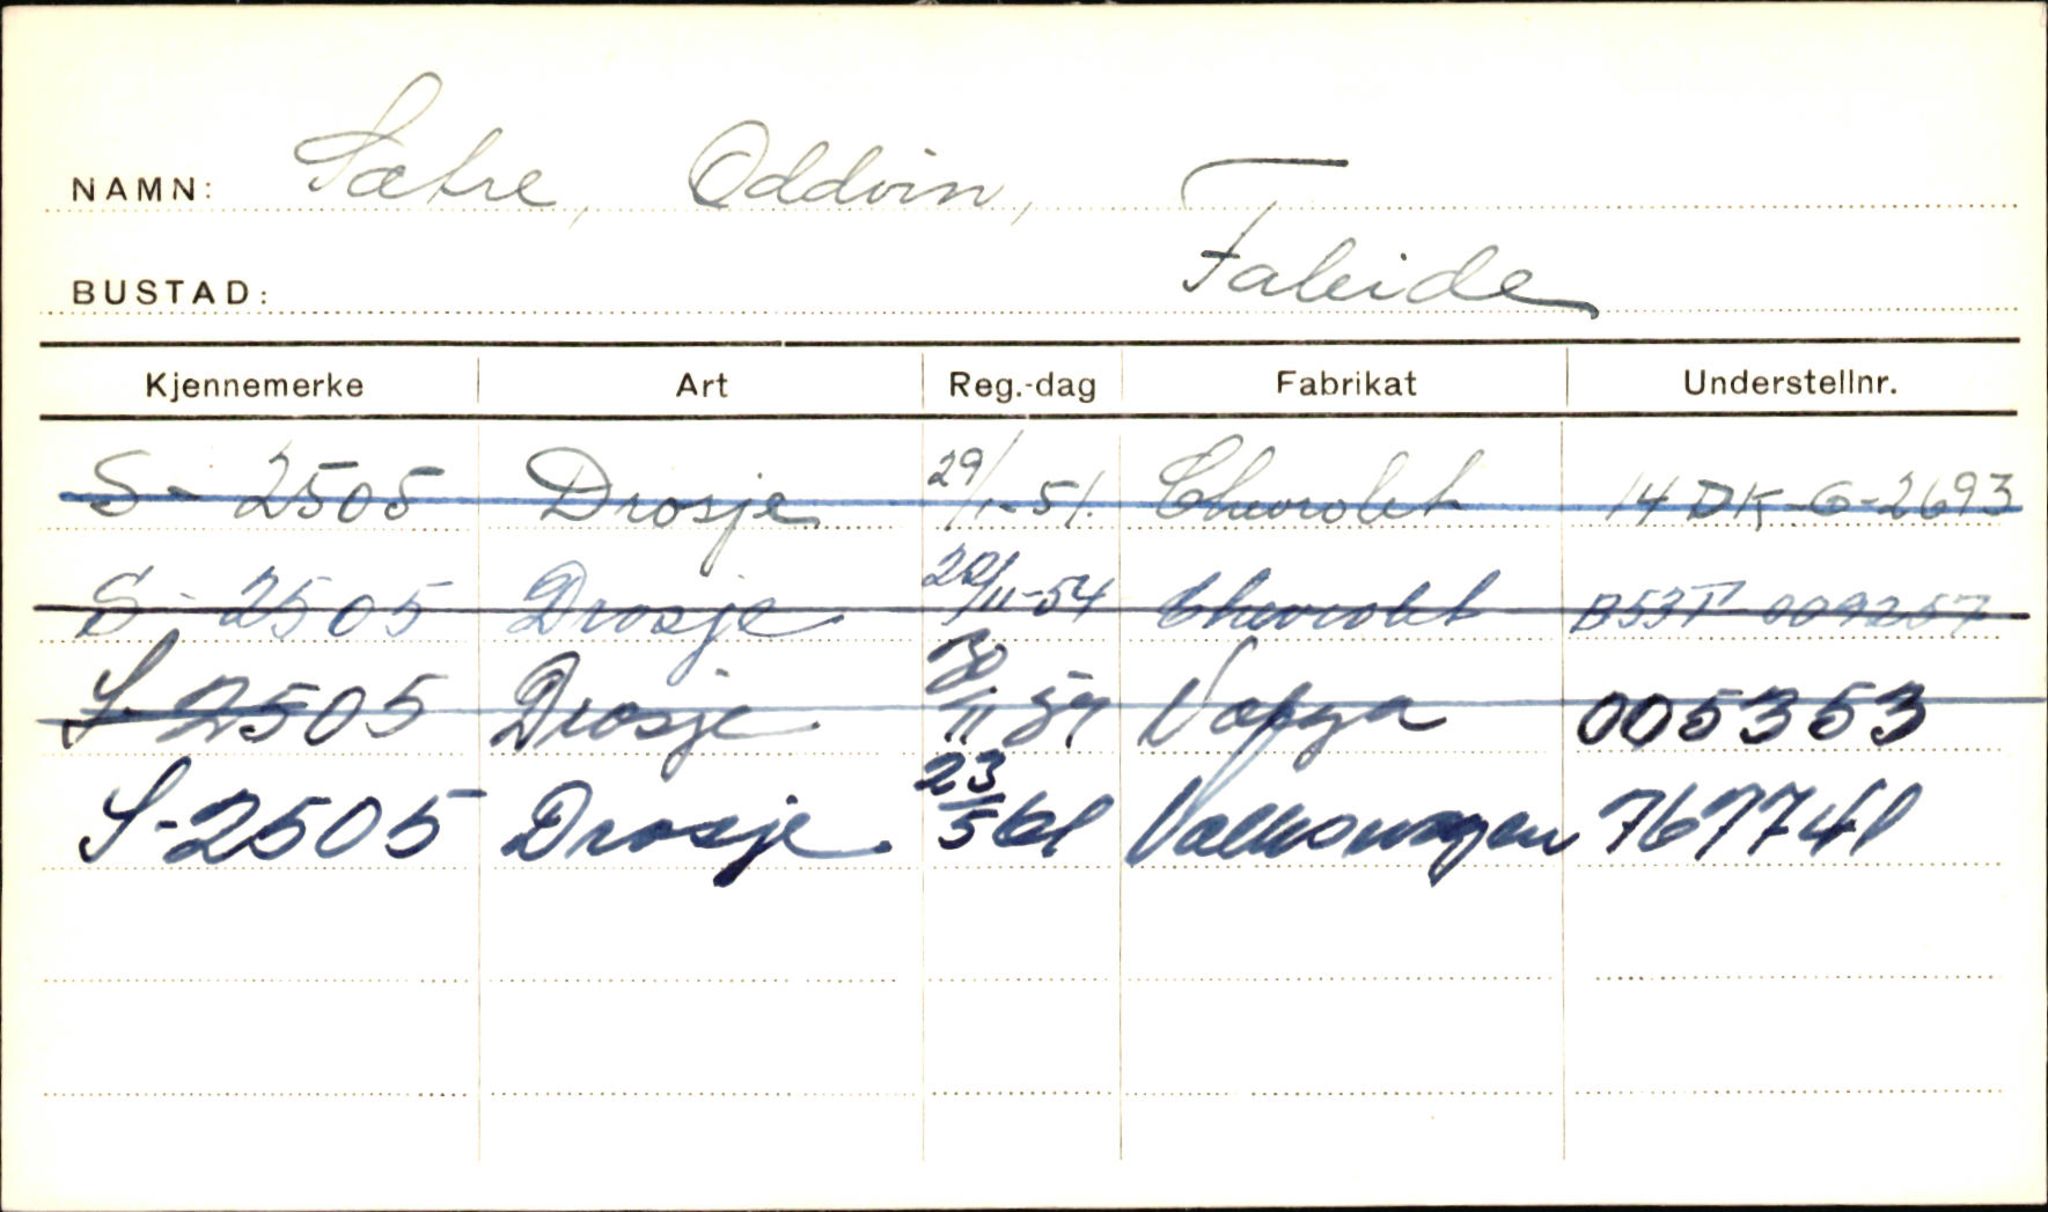 NAMN: Sætre, Oddvin,
BUSTAD: Faleide
Kjennemerke Art Reg.-dag Fabrikat Understellnr.
S- 2505 Drosje 29/1-51. Chevrolet 14 DK-G-2693
S- 2505 Drosje 20/11-54 Chevrolet B53T-009257
S-2505 Drosje 30/11 59 Volga 005353
S-2505 Drosje. 23/5 61 Volkswagen 767741